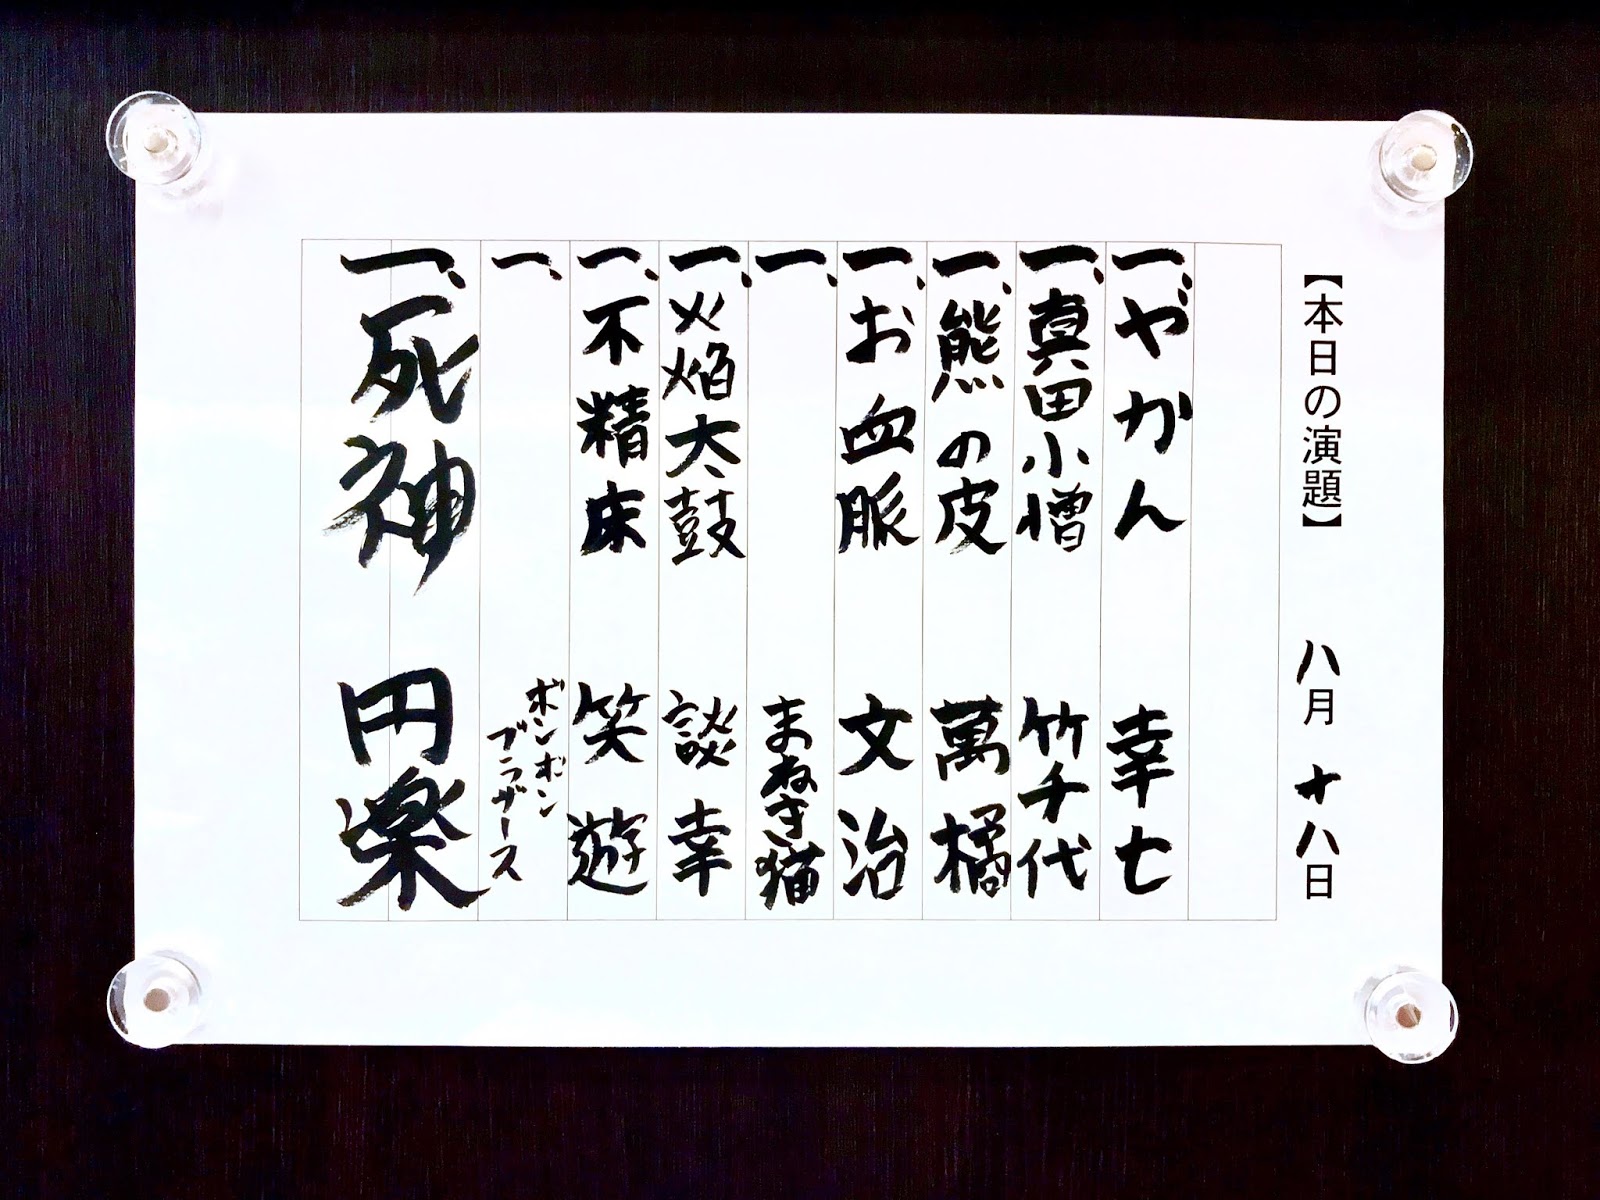 【本日の演題】 八月十八日
一、やかん 幸七
一、真田小僧 竹千代
一、熊の皮 萬橘
一、お血脈 文治
一、 まねき猫
一、火焔太鼓 談幸
一、不精床 笑遊
一、 ボンボンブラザース
一、死神 円楽